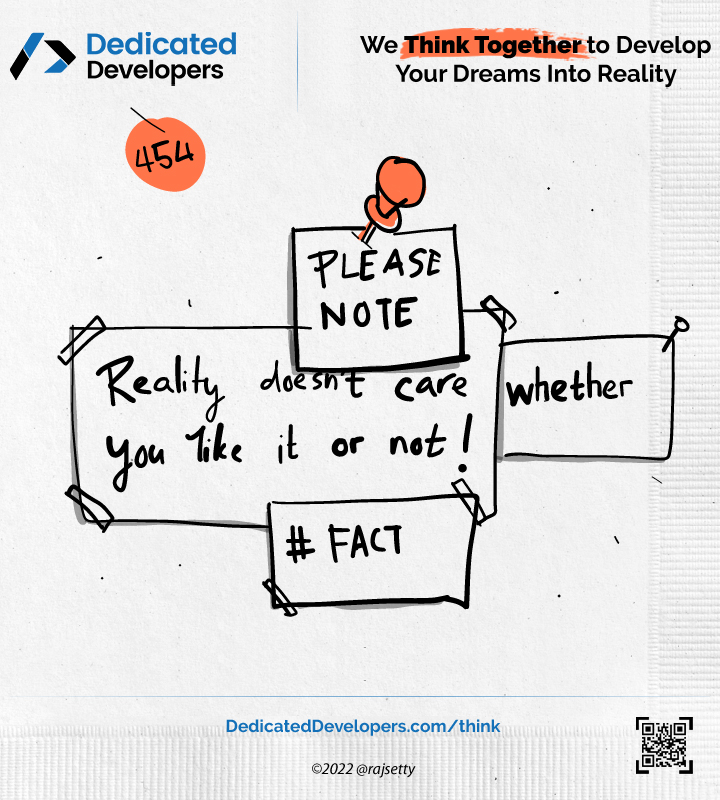 Dedicated
Developers
We Think Together to Develop
Your Dreams Into Reality
454
PLEASE
NOTE
Reality doesn't care whether
you like it or not!
# FACT
DedicatedDevelopers.com/think
©2022 @rajsetty